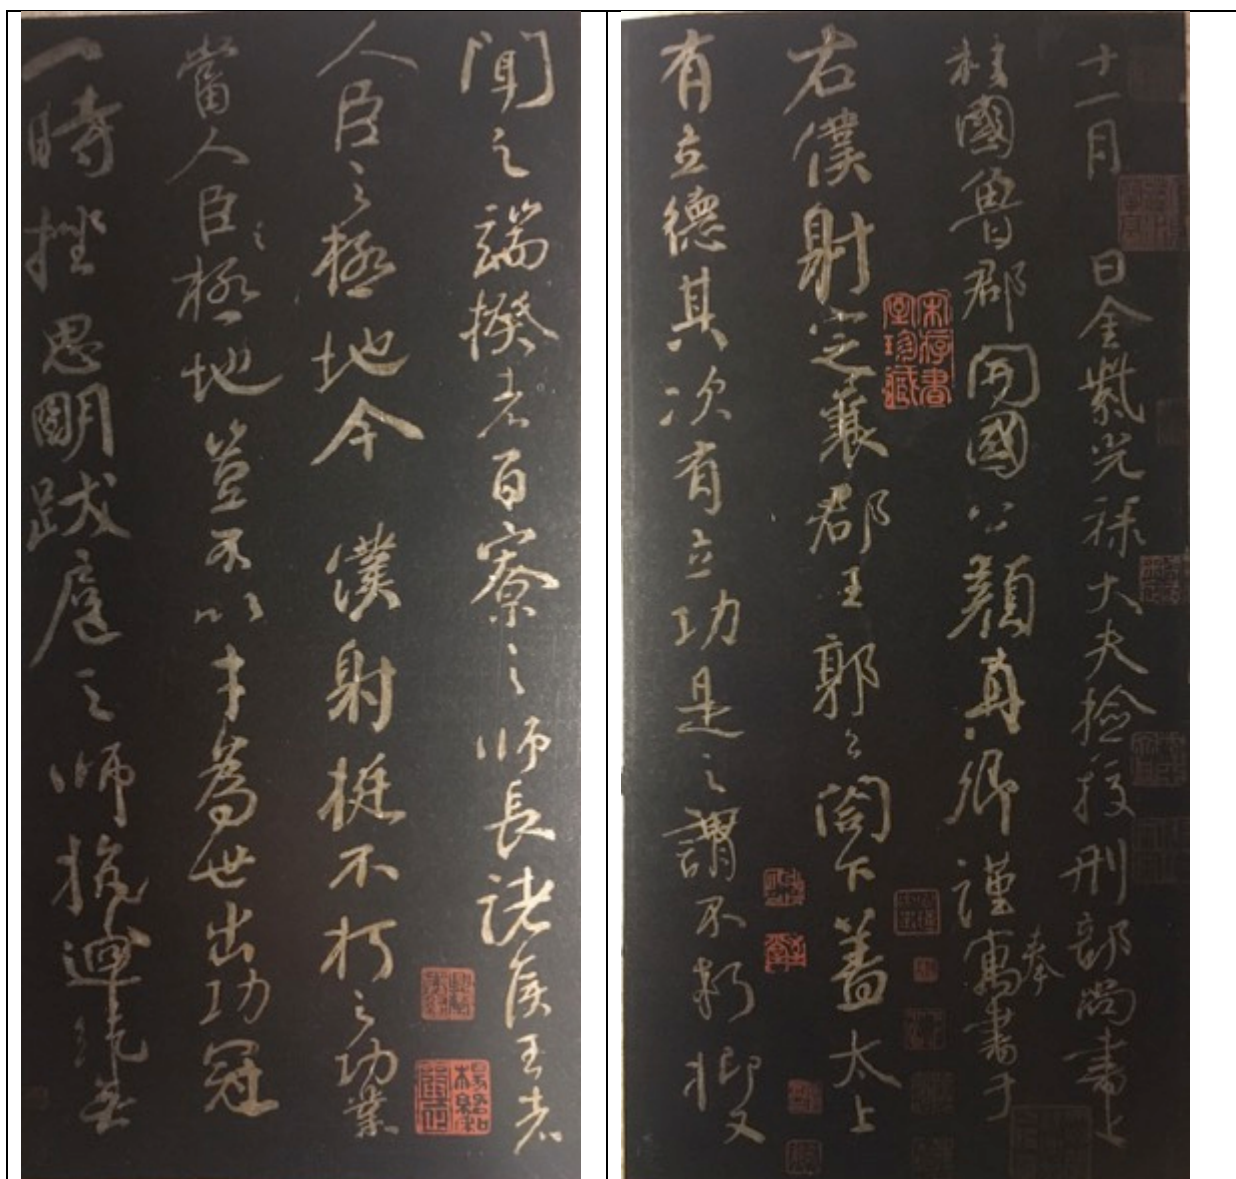 十一月 日金紫光祿大夫檢校刑部尚書上
柱國魯郡開國公顏真卿謹奉寓書于
右僕射定襄郡王郭公閤下蓋太上
有立德其次有立功是之謂不朽抑又
聞之端揆者百寮之師長諸侯王者
人臣之極地今 僕射挺不朽之功業
當人臣之極地豈不以才為世出功冠
一時挫思明跋扈之師抗迴紇無
宋存書室珍藏